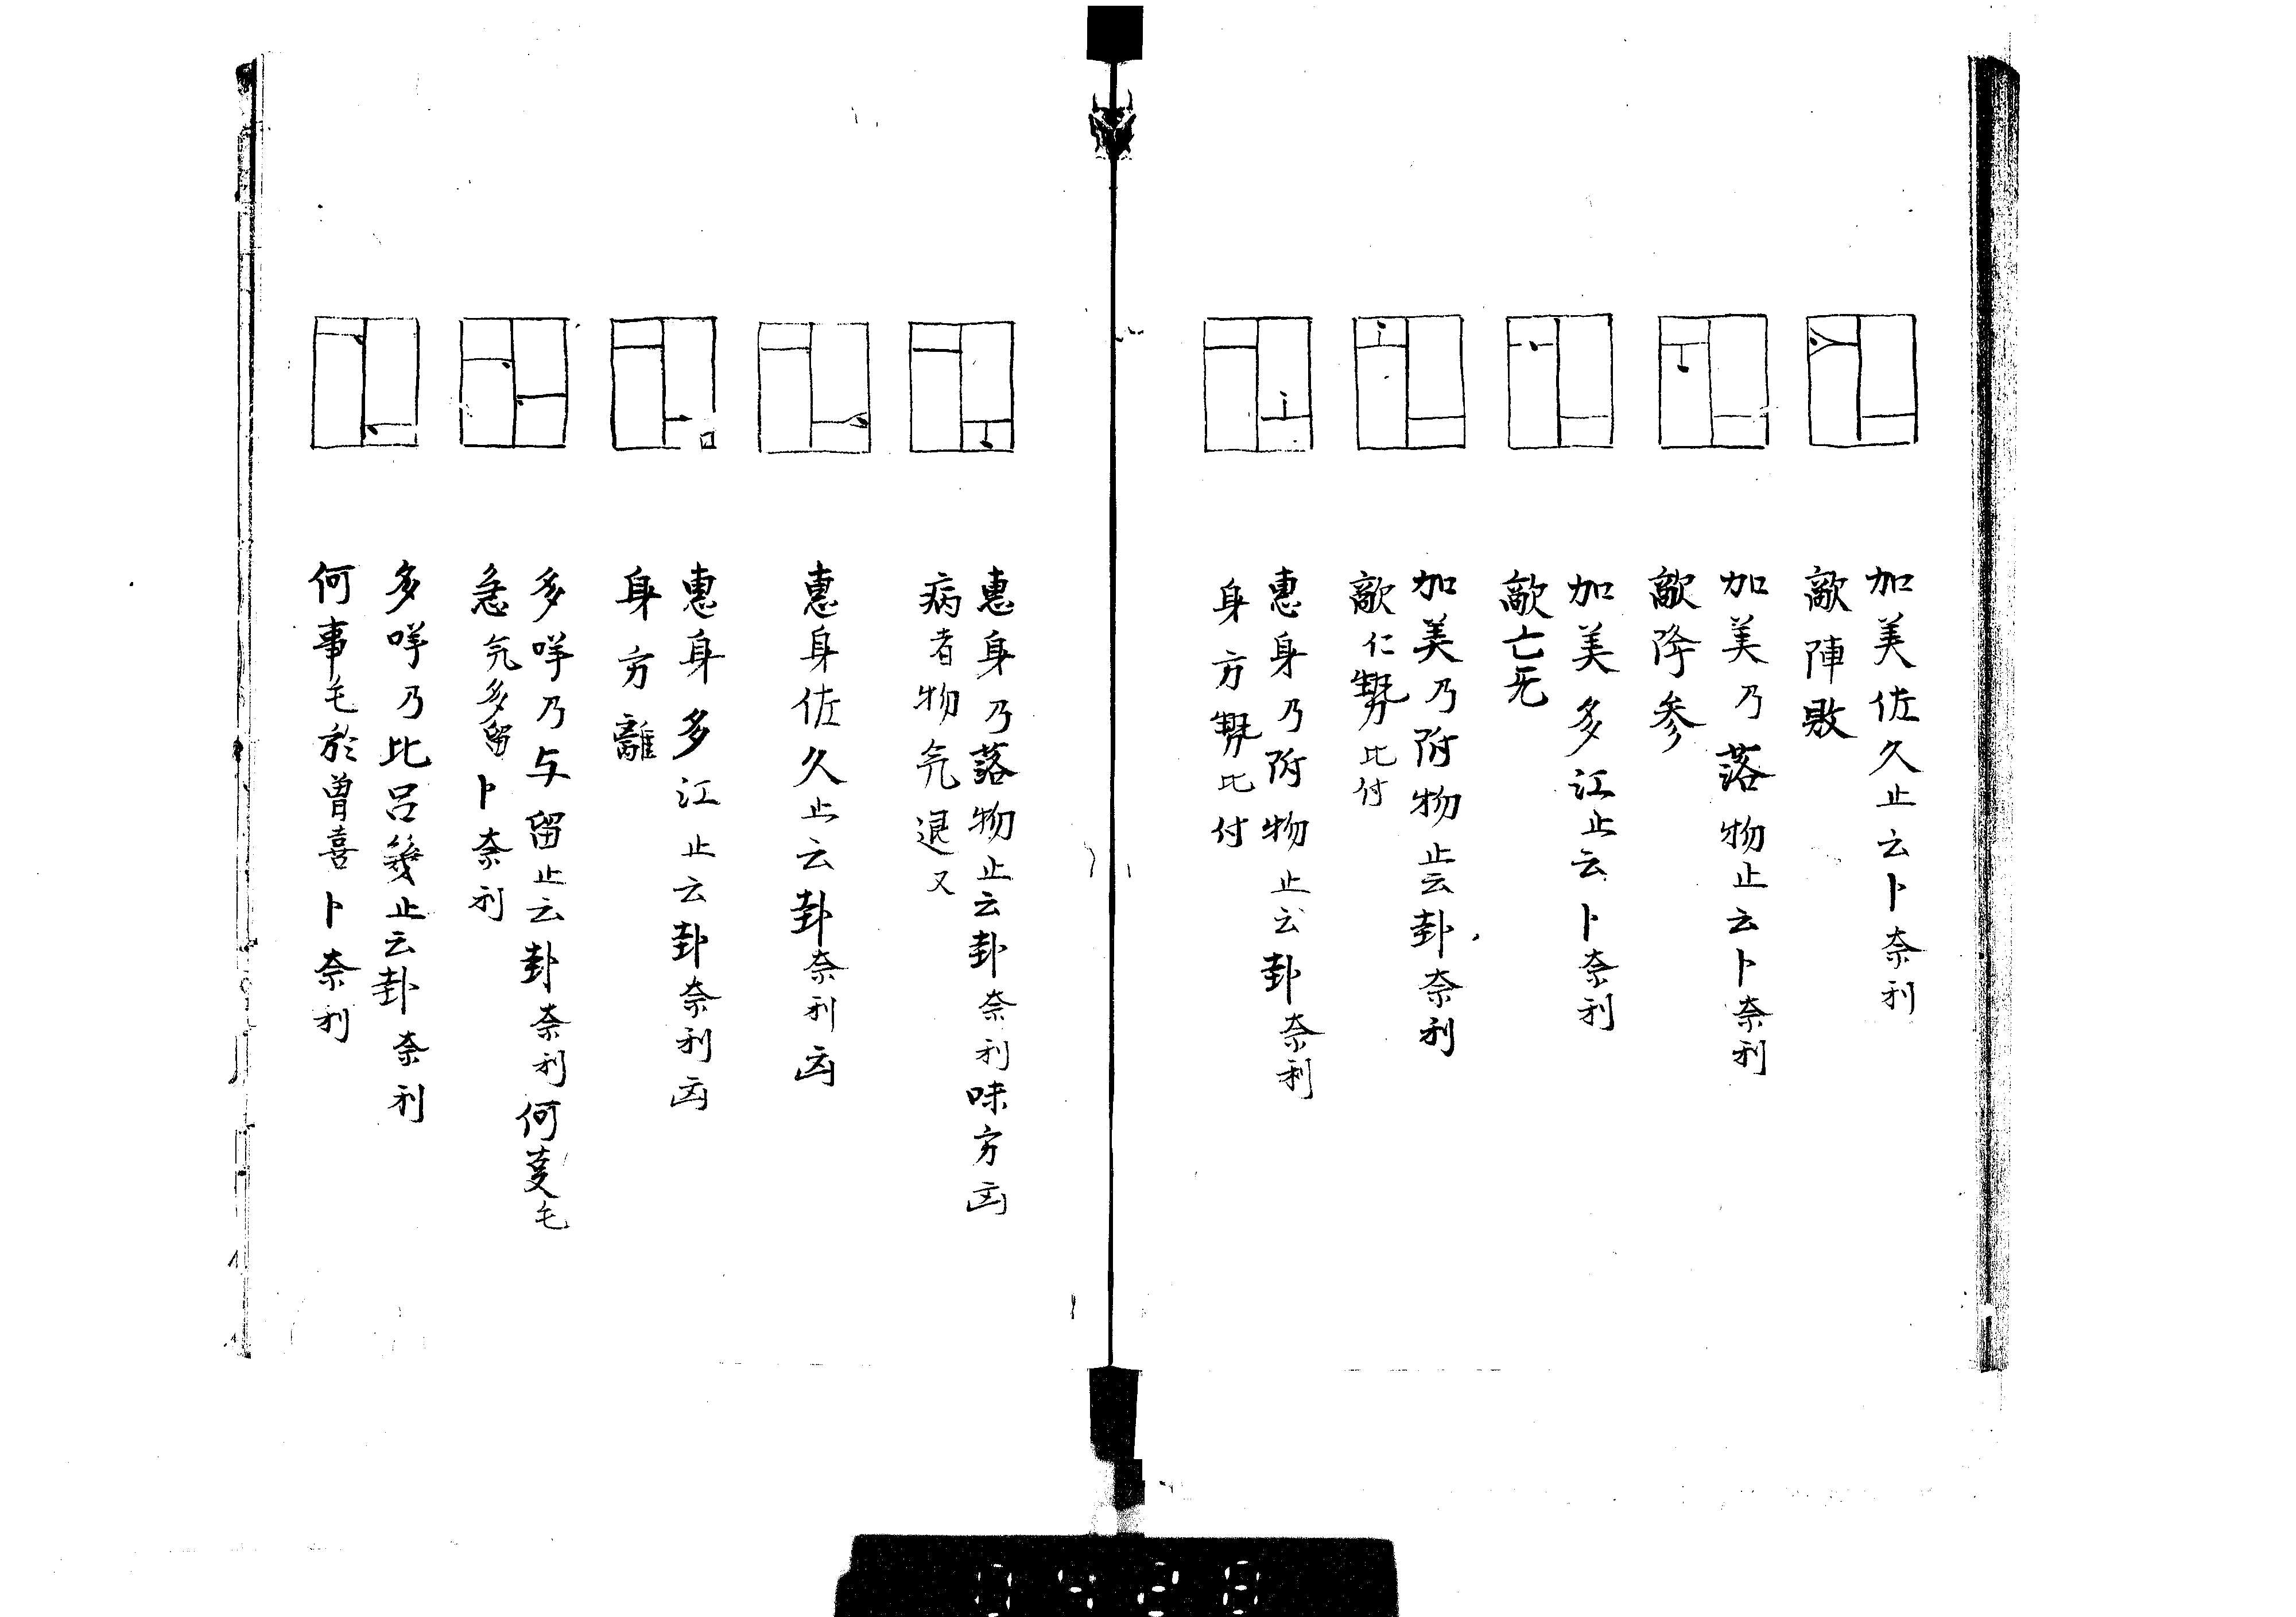 加美佐久止云卜奈利
敵陣敗
加美乃落物止云卜奈利
敵降参
加美多江止云卜奈利
敵亡死
加美乃附物止云卦奈利
敵仁勢比付
惠身乃附物止云卦奈利
身方勢比付
惠身乃落物止云卦奈利味方凶
病者物気退又
惠身佐久止云卦奈利凶
惠身多江止云卦奈利凶
身方離
多咩乃与留止云卦奈利何叓毛
急気多留卜奈利
多咩乃比呂幾止云卦奈利
何事毛於曽喜卜奈利